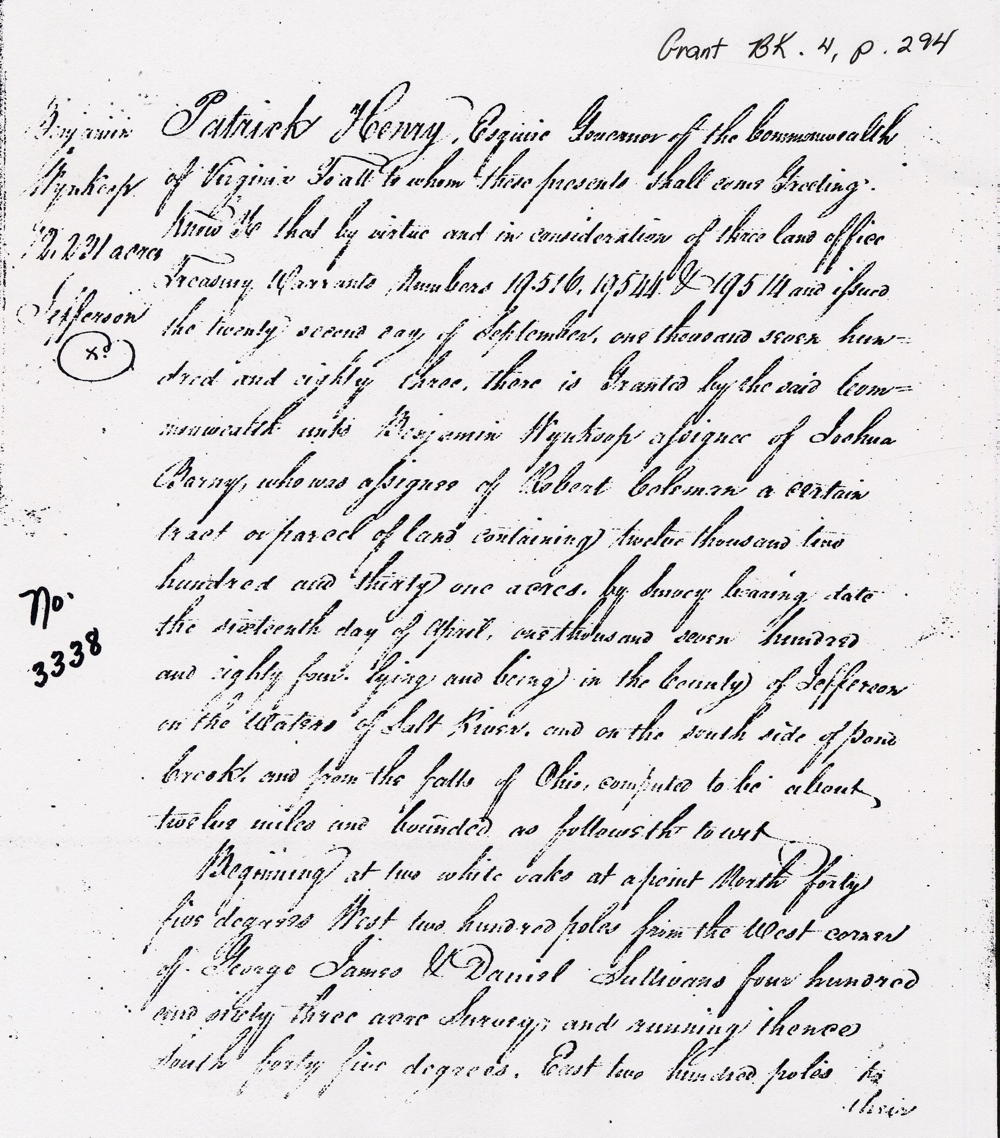 Grant BK. 4, p. 294
Benjamin
Wynkoop
12,231 acres
Jefferson
xd
No.
3338
Patrick Henry, Esquire Governor of the Commonwealth
of Virginia To all to whom these presents shall come Greeting.
Know Ye that by virtue and in consideration of three land office
Treasury Warrants Numbers 19516, 19544 & 19514 and issued
the twenty second day of September, one thousand seven hun=
dred and eighty three, there is Granted by the said Com=
monwealth unto Benjamin Wynkoop assignee of Joshua
Barny, who was assignee of Robert Coleman a certain
tract or parcel of land containing twelve thousand two
hundred and thirty one acres. by Survey bearing date
the sixteenth day of April, one thousand seven hundred
and eighty four. lying and being in the County of Jefferson
on the Waters of Salt River, and on the south side of pond
creek, and from the falls of Ohio, computed to be about
twelve miles and bounded as followeth to wit
Beginning at two white oaks at a point North forty
five degrees West two hundred poles from the West corner
of George James & Daniel Sullivans four hundred
and sixty three acre Survey, and running thence
South forty five degrees. East two hundred poles to
their